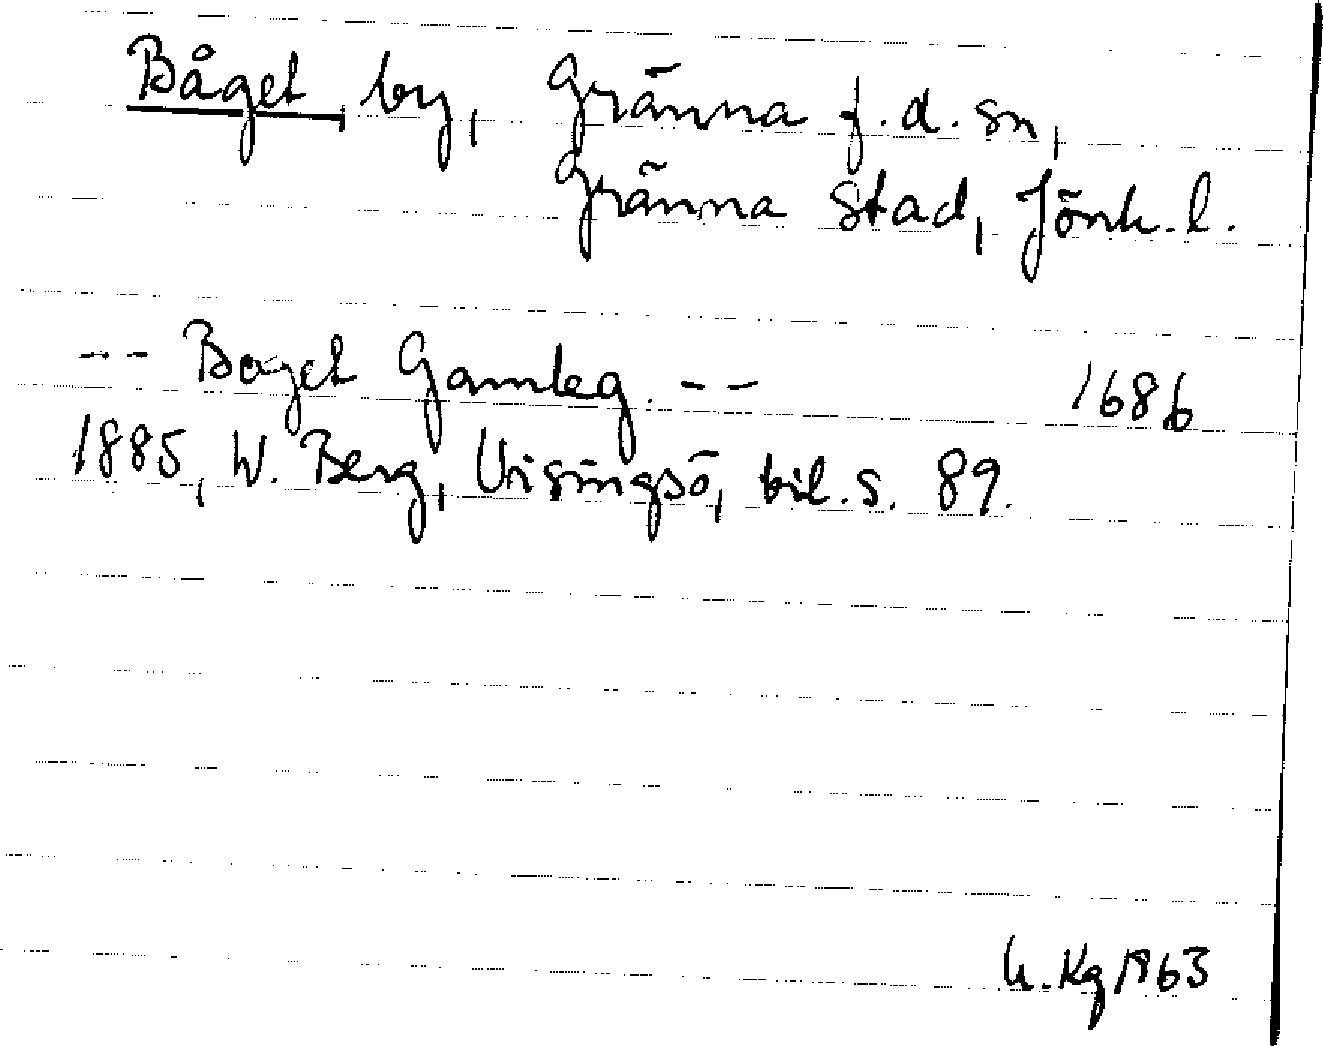 Båget, by, Gränna f.d. sn,
Gränna stad, Jönk. l.
-- Boget Gamleg. -- 1686
1885, W. Berg, Visingsö, bil. s. 89.
U. Kg 1963